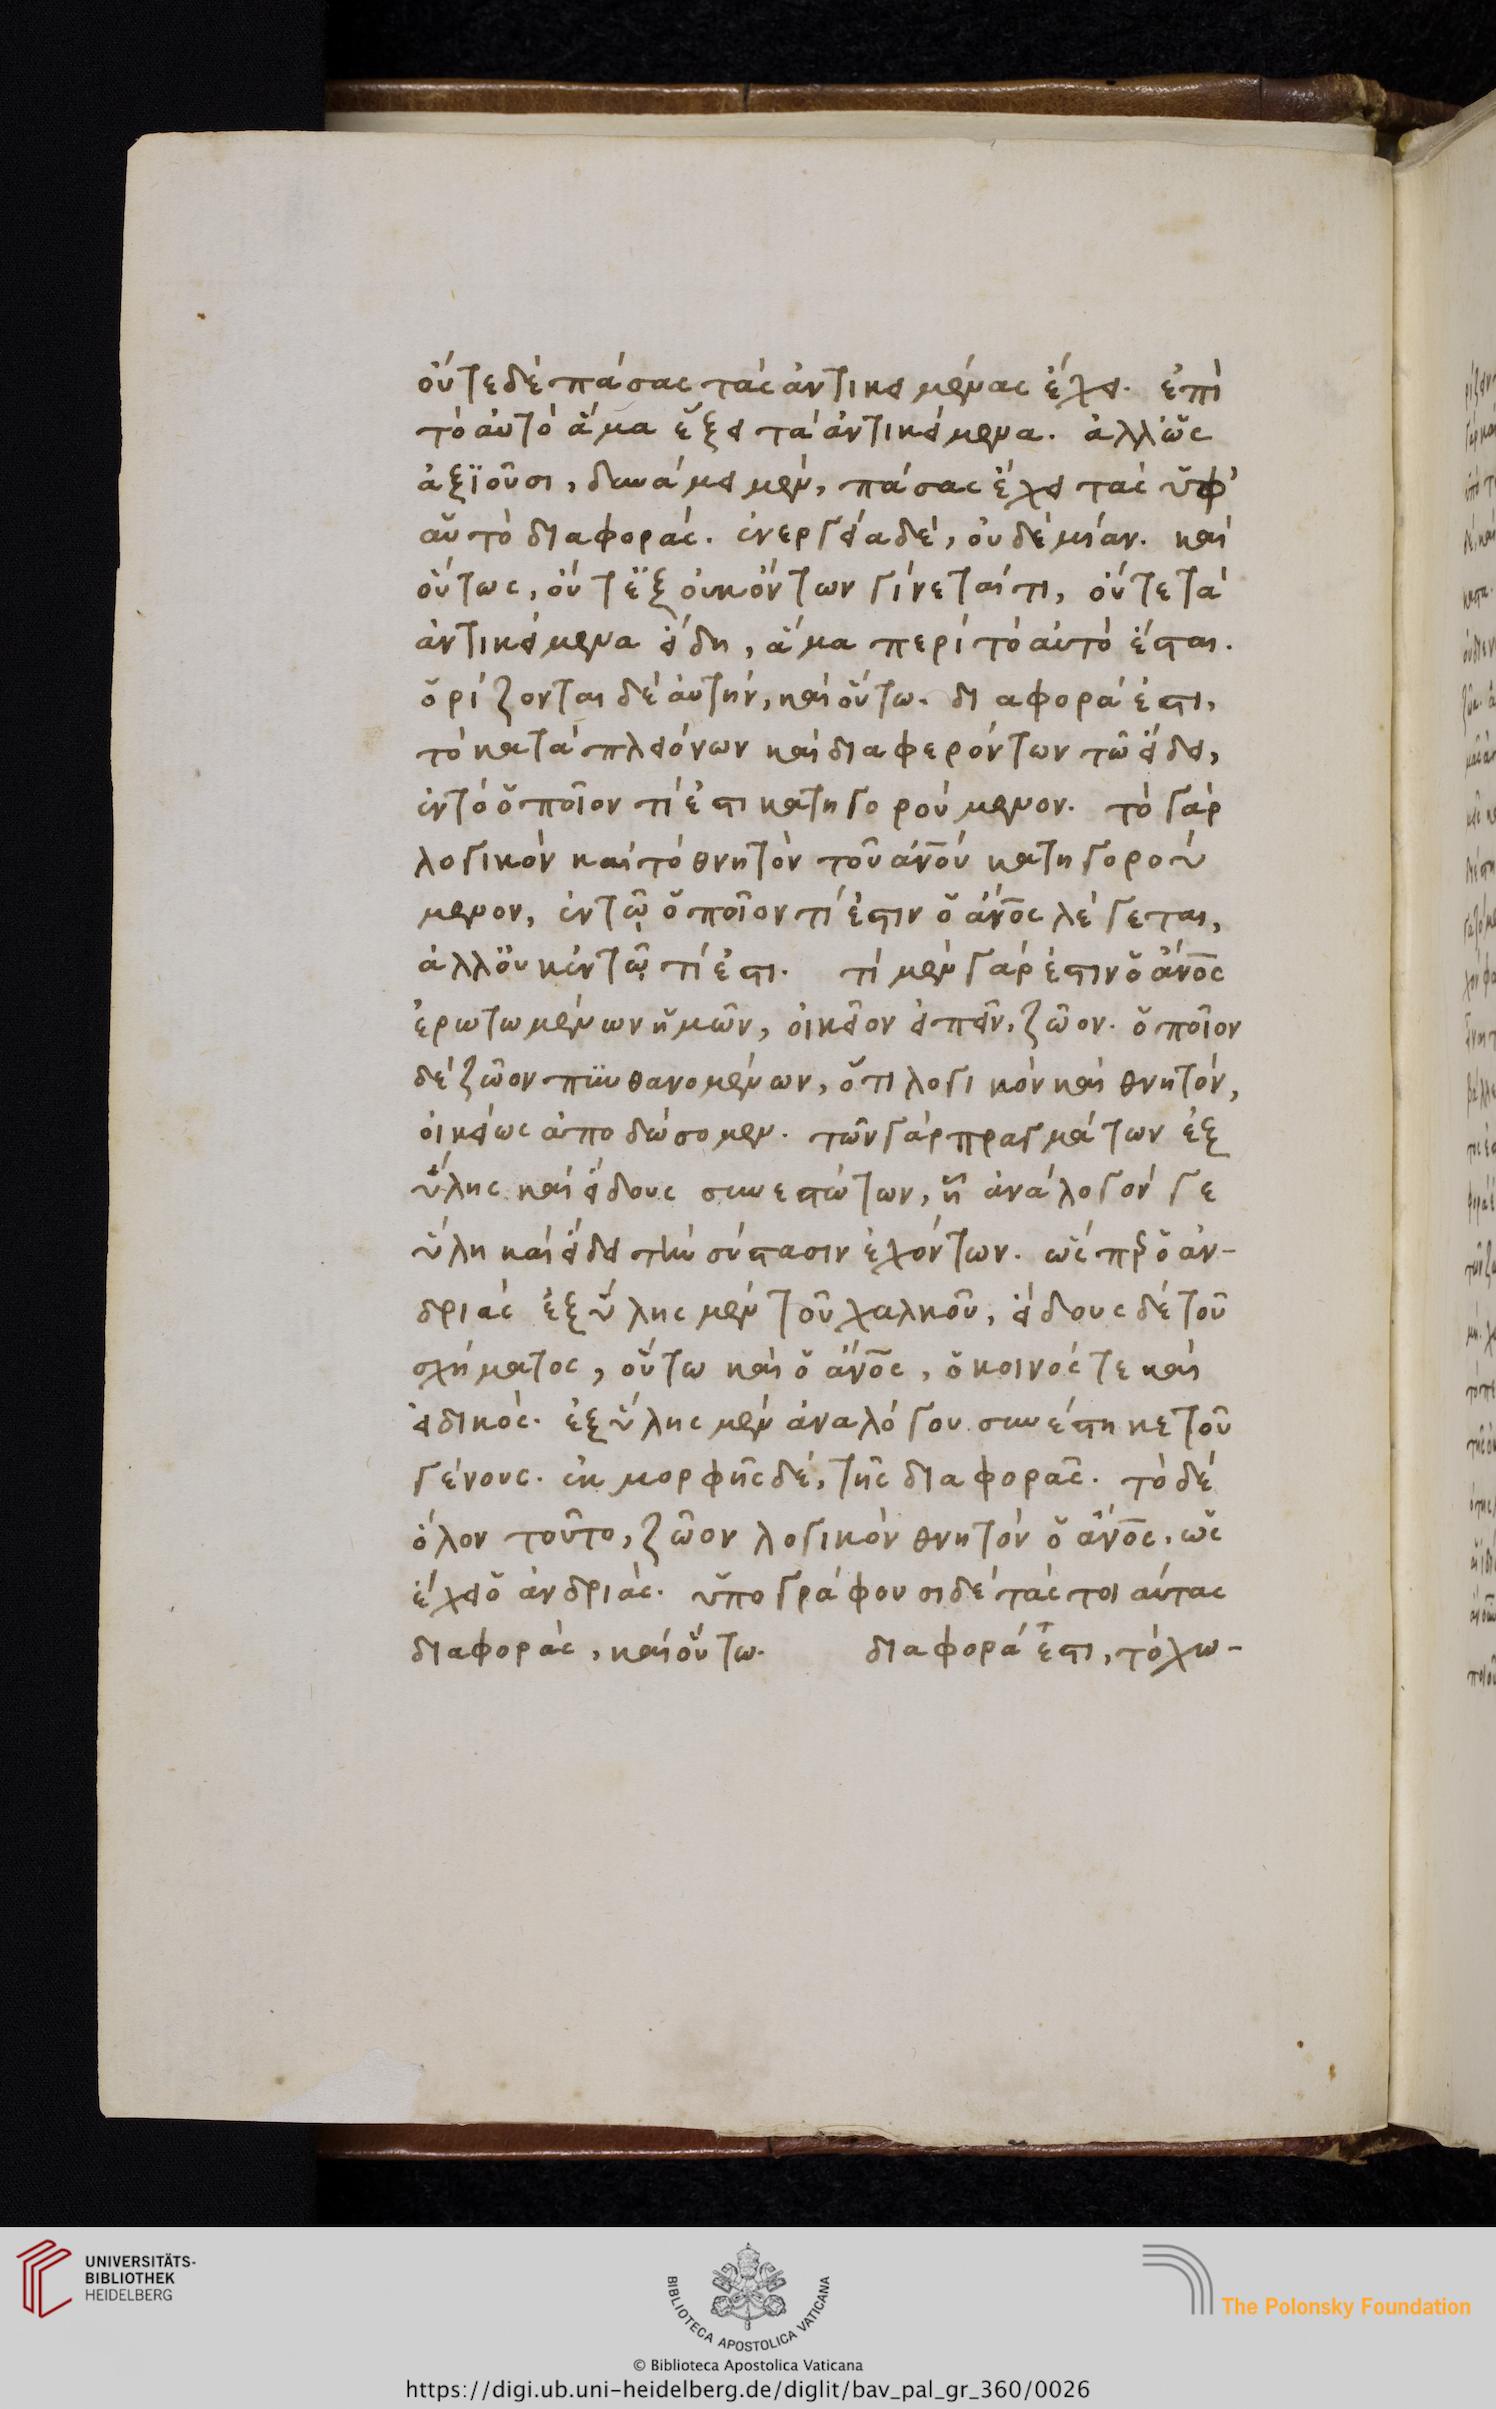 οὔτε δὲ πάσας τὰς ἀντικειμένας ἔχει. ἐπὶ
τὸ αὐτὸ ἅμα ἕξει τὰ ἀντικείμενα. ἀλλ' ὡς
ἀξϊοῦσι, δυνάμει μὲν, πάσας ἔχει τὰς ὑφ'
αὑτὸ διαφοράς. ἐνεργείᾳ δὲ, οὐδεμίαν. καὶ
οὕτως, οὔτ' ἐξ οὐκ ὄντων γίνεταί τι, οὔτε τὰ
ἀντικείμενα εἴδη, ἅμα περὶ τὸ αὐτὸ ἔσται.
ὁρίζονται δὲ αὐτὴν, καὶ οὕτω. διαφορά ἐστι,
τὸ κατὰ πλειόνων καὶ διαφερόντων τῷ εἴδει,
ἐν τὸ ὁποῖον τί ἐστι κατηγορούμενον. τὸ γὰρ
λογικὸν καὶ τὸ θνητὸν τοῦ ἀνου κατηγορού
μενον, ἐν τῷ ὁποῖον τί ἐστιν ὁ ἄνος λέγεται,
ἀλλ' οὐκ ἐν τῷ τί ἐστι. τί μὲν γάρ ἐστιν ὁ ἄνος
ἐρωτωμένων ἡμῶν, οἰκεῖον εἰπεῖν, ζῶον. ὁποῖον
δὲ ζῶον πυνθανομένων, ὅτι λογικὸν καὶ θνητόν,
οἰκείως ἀποδώσομεν. τῶν γὰρ πραγμάτων ἐξ
ὕλης καὶ εἴδους συνεστώτων, ἢ ἀνάλογόν γε
ὕλῃ καὶ εἴδει τὴν σύστασιν ἐχόντων. ὥσπερ ὁ ἀν-
δριὰς ἐξ ὕλης μὲν τοῦ χαλκοῦ, εἴδους δὲ τοῦ
σχήματος, οὕτω καὶ ὁ ἄνος, ὁ κοινός τε καὶ
εἰδικὸς. ἐξ ὕλης μὲν ἀναλόγου συνέστηκε τοῦ
γένους. ἐκ μορφῆς δὲ, τῆς διαφορᾶς. τὸ δὲ
ὅλον τοῦτο, ζῶον λογικὸν θνητὸν ὁ ἄνος. ὡς
ἔχει ὁ ἀνδριὰς. ὑπογράφουσι δὲ τὰς τοιαύτας
διαφορὰς, καὶ οὕτω. διαφορά ἐστι, τὸ χω-
UNIVERSITÄTS-
BIBLIOTHEK
HEIDELBERG
BIBLIOTECA APOSTOLICA VATICANA
The Polonsky Foundation
© Biblioteca Apostolica Vaticana
https://digi.ub.uni-heidelberg.de/diglit/bav_pal_gr_360/0026